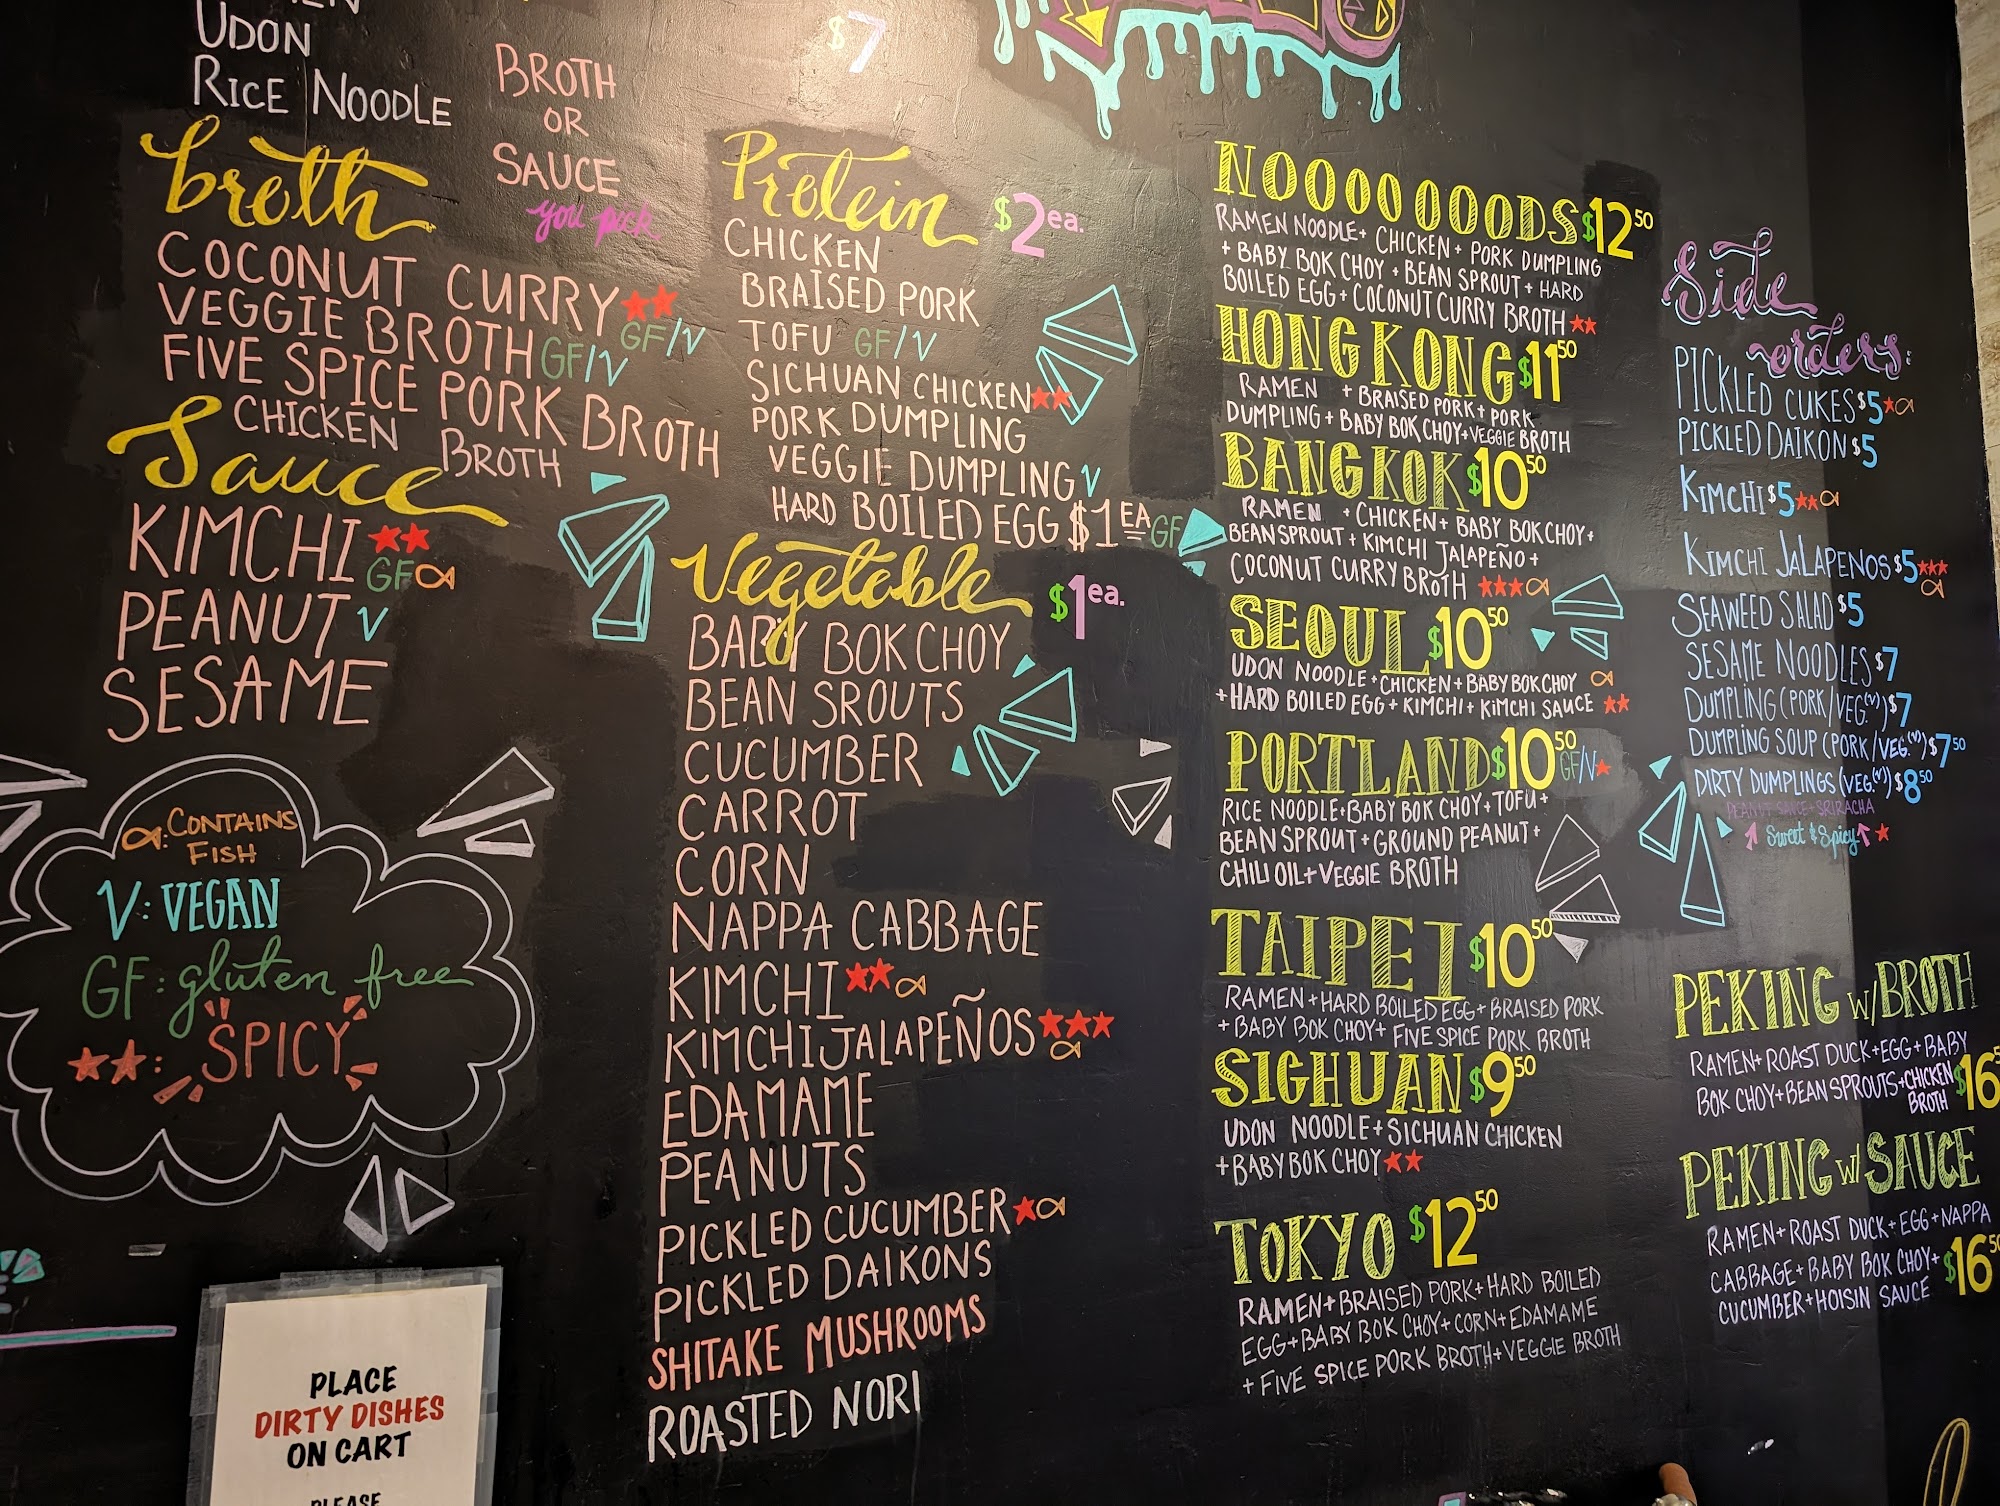 UDON
RICE NOODLE
BROTH
OR
SAUCE
you pick
$7
broth
COCONUT CURRY
GF/V
VEGGIE BROTH GF/V
FIVE SPICE PORK BROTH
CHICKEN BROTH
Sauce
KIMCHI
GF
PEANUT V
SESAME
: CONTAINS
FISH
V: VEGAN
GF: gluten free
: SPICY
PLACE
DIRTY DISHES
ON CART
PLEASE
Protein $2 ea.
CHICKEN
BRAISED PORK
TOFU GF/V
SICHUAN CHICKEN
PORK DUMPLING
VEGGIE DUMPLING V
HARD BOILED EGG $1 EA GF
Vegetable $1 ea.
BABY BOK CHOY
BEAN SROUTS
CUCUMBER
CARROT
CORN
NAPPA CABBAGE
KIMCHI
KIMCHI JALAPEÑOS
EDAMAME
PEANUTS
PICKLED CUCUMBER
PICKLED DAIKONS
SHITAKE MUSHROOMS
ROASTED NORI
NOOOOOOODS $12 50
RAMEN NOODLE + CHICKEN + PORK DUMPLING
+ BABY BOK CHOY + BEAN SPROUT + HARD
BOILED EGG + COCONUT CURRY BROTH
HONG KONG $11 50
RAMEN + BRAISED PORK + PORK
DUMPLING + BABY BOK CHOY + VEGGIE BROTH
BANGKOK $10 50
RAMEN + CHICKEN + BABY BOK CHOY +
BEAN SPROUT + KIMCHI JALAPEÑO +
COCONUT CURRY BROTH
SEOUL $10 50
UDON NOODLE + CHICKEN + BABY BOK CHOY
+ HARD BOILED EGG + KIMCHI + KIMCHI SAUCE
PORTLAND $10 50 GF/V
RICE NOODLE + BABY BOK CHOY + TOFU +
BEAN SPROUT + GROUND PEANUT +
CHILI OIL + VEGGIE BROTH
TAIPEI $10 50
RAMEN + HARD BOILED EGG + BRAISED PORK
+ BABY BOK CHOY + FIVE SPICE PORK BROTH
SICHUAN $9 50
UDON NOODLE + SICHUAN CHICKEN
+ BABY BOK CHOY
TOKYO $12 50
RAMEN + BRAISED PORK + HARD BOILED
EGG + BABY BOK CHOY + CORN + EDAMAME
+ FIVE SPICE PORK BROTH + VEGGIE BROTH
Side
orders:
PICKLED CUKES $5
PICKLED DAIKON $5
KIMCHI $5
KIMCHI JALAPENOS $5
SEAWEED SALAD $5
SESAME NOODLES $7
DUMPLING (PORK/VEG.(V)) $7
DUMPLING SOUP (PORK/VEG.(V)) $7 50
DIRTY DUMPLINGS (VEG.(V)) $8 50
PEANUT SAUCE + SRIRACHA
Sweet & Spicy
PEKING W/ BROTH
RAMEN + ROAST DUCK + EGG + BABY
BOK CHOY + BEAN SPROUTS + CHICKEN
BROTH $16
PEKING W/ SAUCE
RAMEN + ROAST DUCK + EGG + NAPPA
CABBAGE + BABY BOK CHOY +
CUCUMBER + HOISIN SAUCE $16